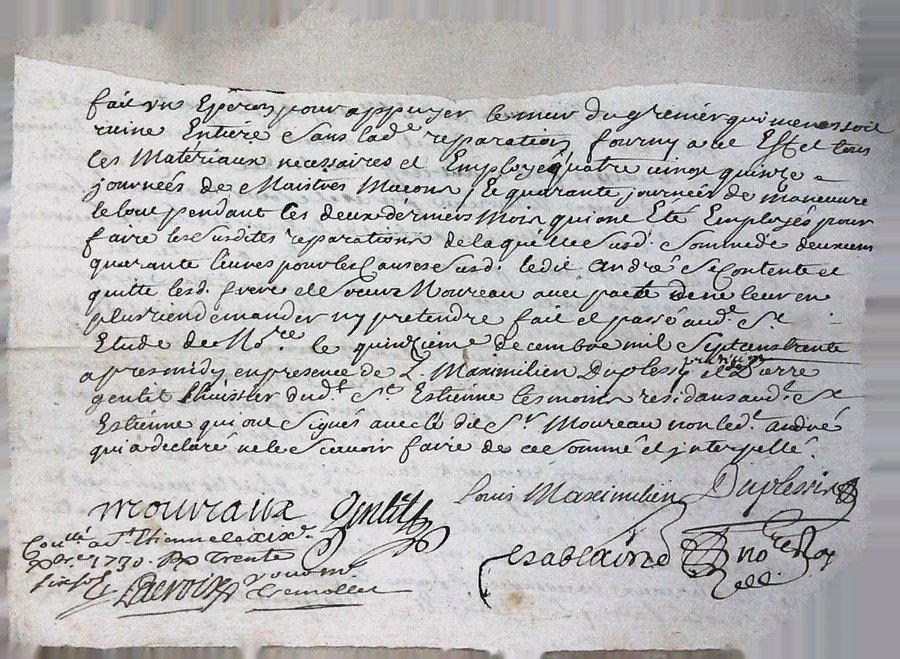 fait un Eperon pour appuyer le mur du grenier qui menassoit
ruine Entiere Sans lad.e reparation, fourny a cet Effet tous
les Matériaux necessaires et Employé quatre vingt quinze
journeés de Maistres Macons, & quarante journeés de maneuvre
le tout pendant les deux derniers Mois qui ont Eté Employés pour
faire les Susdites reparations de laquelle Susd. Somme de deux cens
quarante livres pour les Causes Susd. ledit André Se Contente et
quitte lesd. frere et Soeur Moureau avec pacte de ne leur en
plus rien demander ny pretendre fait et passé aud.t S.t
Etude de No.re le quinzieme decembre mil Sept cens trente
apres midy en presence de L. Maximilien Duplessis et Pierre
gentil huissier dud.t S.t Estienne tesmoins residans aud.t S.t
Estienne qui ont Signés avec le dit S.r Moureau non led.t andré
qui a declaré ne le Scavoir faire de ce Sommé et interpellé.
mouraux Gentil Louis Maximilien Duplessis
Con.llé a S.t Etienne le XIX.e
X.bre 1730. Rp trente
six sols Lacroix Tremollet
Esablexime no.re Roy